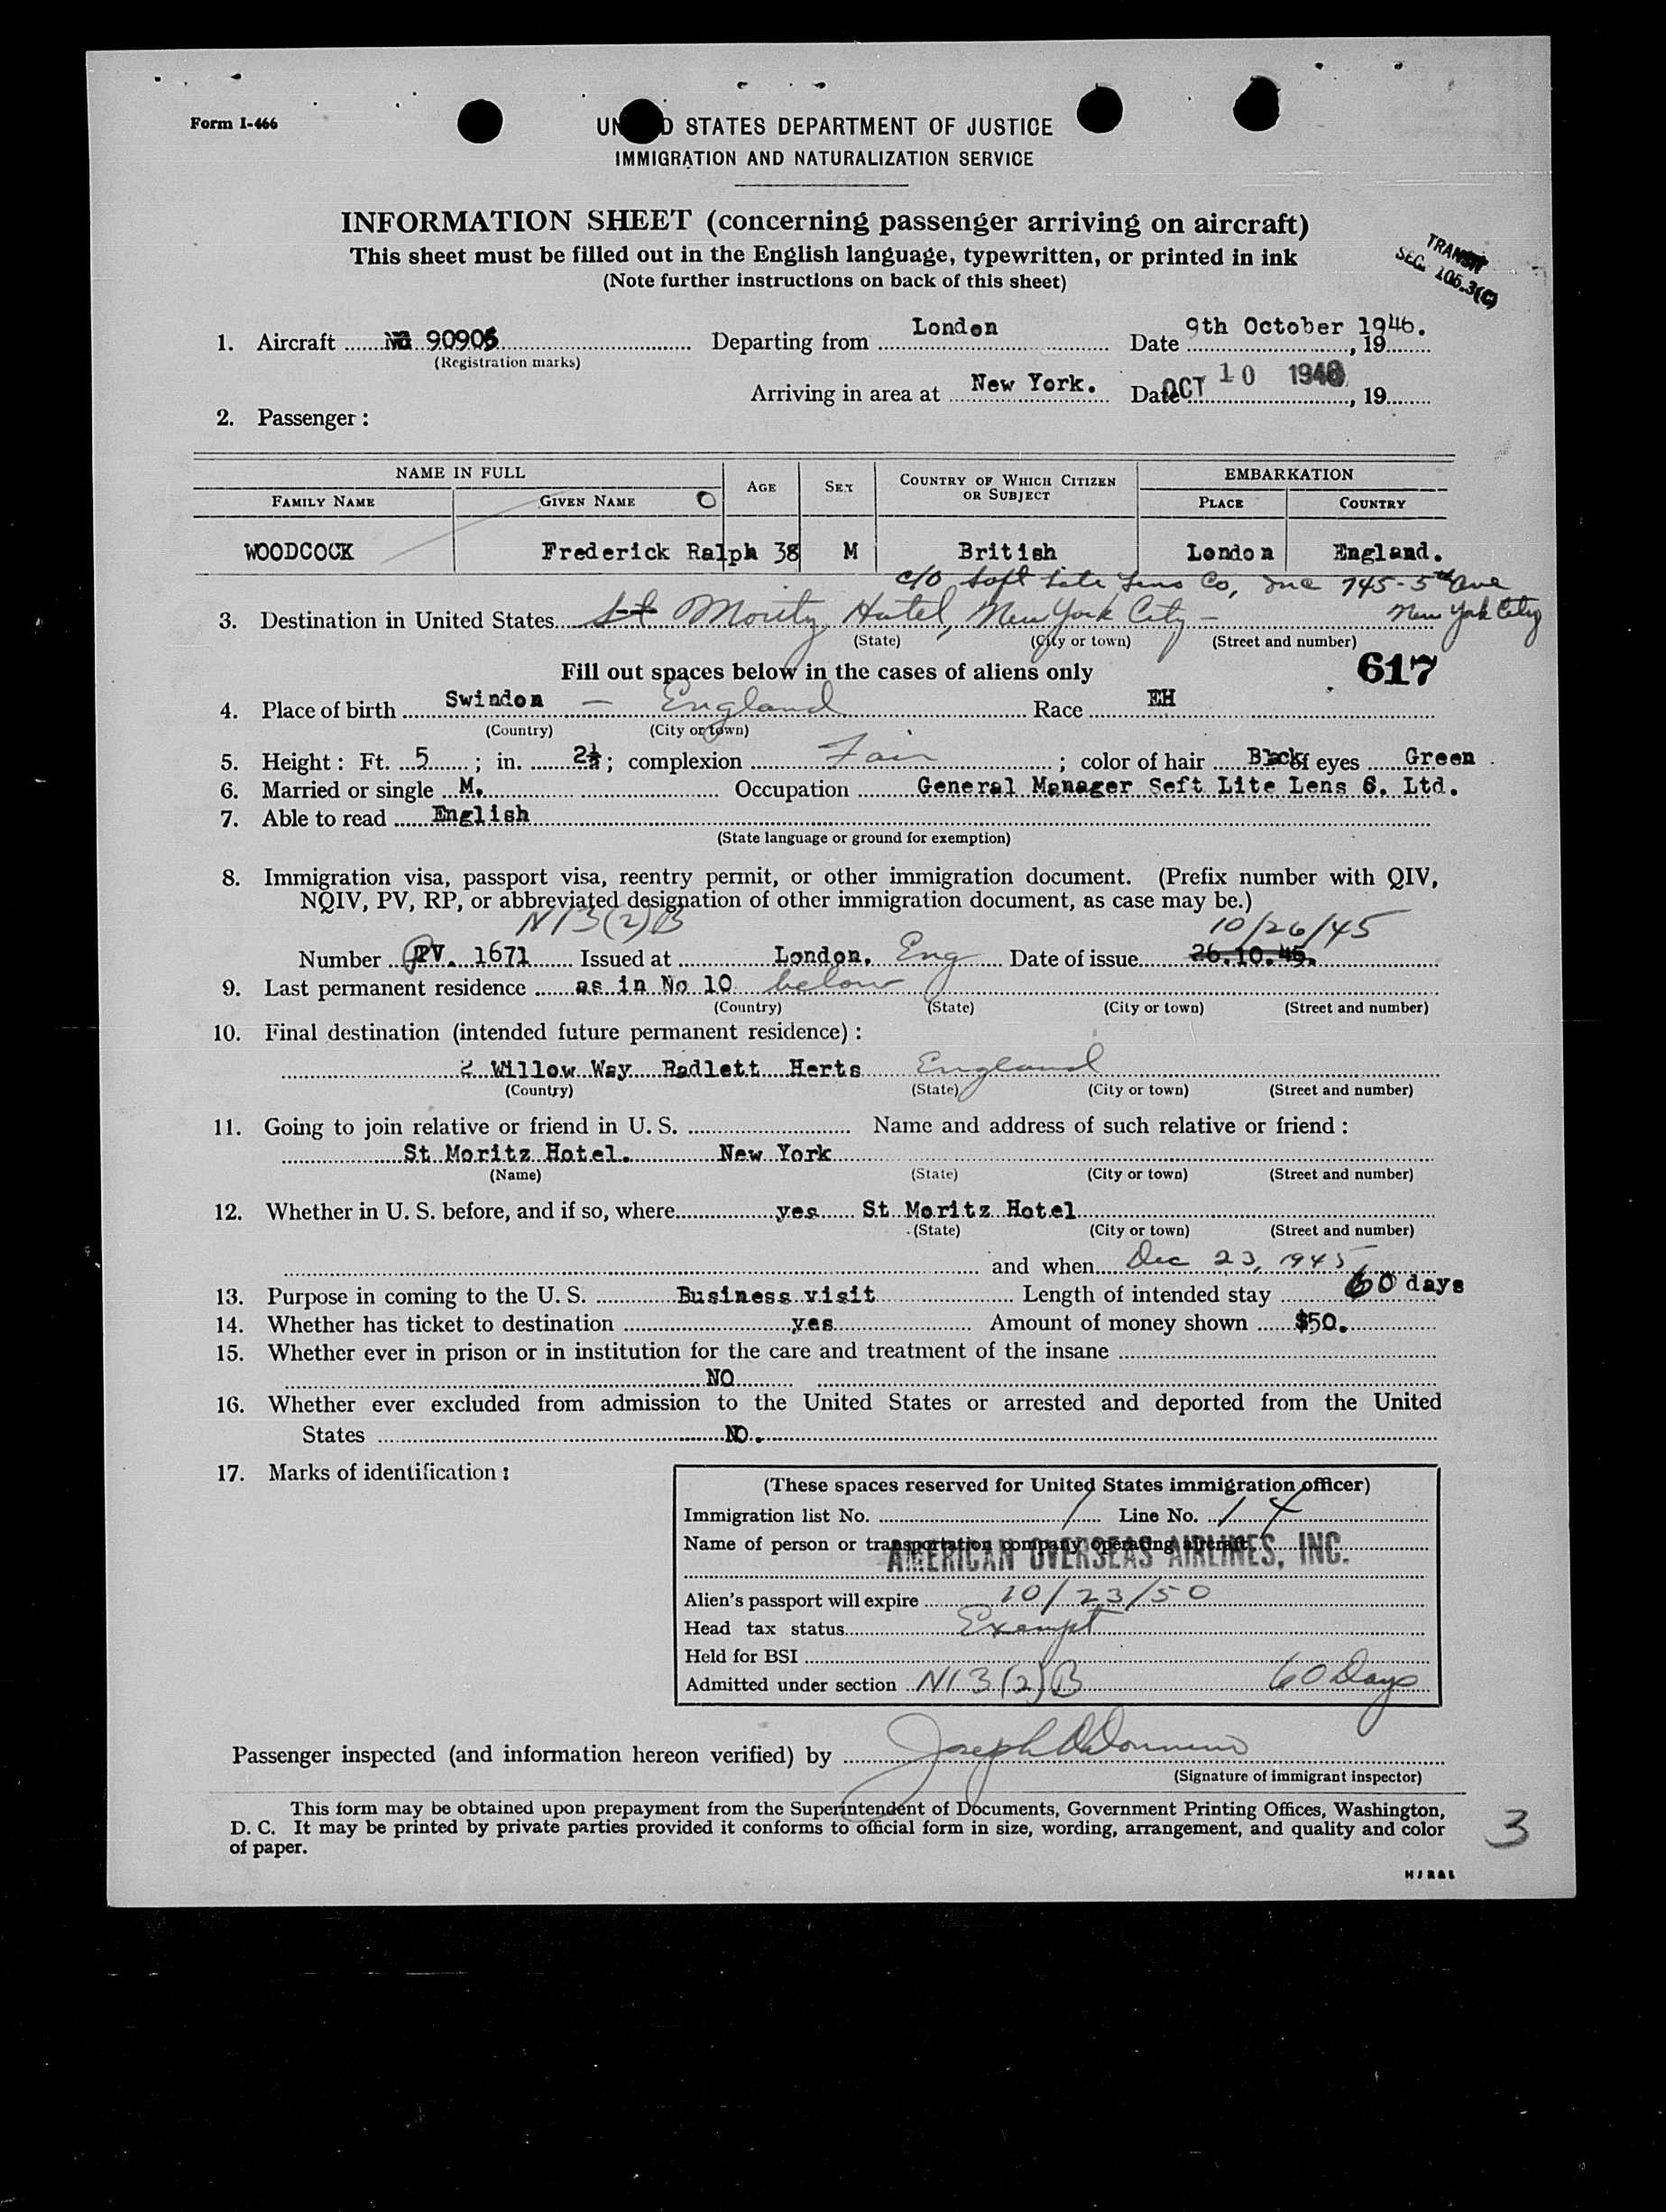 Form I-466
UNITED STATES DEPARTMENT OF JUSTICE
IMMIGRATION AND NATURALIZATION SERVICE
INFORMATION SHEET (concerning passenger arriving on aircraft)
This sheet must be filled out in the English language, typewritten, or printed in ink
(Note further instructions on back of this sheet)
TRANSIT
SEC. 105.3(C)
1. Aircraft 90905 Departing from London Date 9th October 1946. , 19
(Registration marks)
Arriving in area at New York. Date OCT 10 1946 , 19
2. Passenger :
NAME IN FULL AGE SEX COUNTRY OF WHICH CITIZEN OR SUBJECT EMBARKATION
FAMILY NAME GIVEN NAME PLACE COUNTRY
WOODCOCK Frederick Ralph 38 M British London England.
c/o Soft Lite Lens Co, Inc 745-5th Ave
3. Destination in United States St Moritz Hotel, New York City - New York City
(State) (City or town) (Street and number)
Fill out spaces below in the cases of aliens only 617
4. Place of birth Swindon - England Race EH
(Country) (City or town)
5. Height : Ft. 5 ; in. 2½ ; complexion Fair ; color of hair Black of eyes Green
6. Married or single M. Occupation General Manager Soft Lite Lens 6. Ltd.
7. Able to read English
(State language or ground for exemption)
8. Immigration visa, passport visa, reentry permit, or other immigration document. (Prefix number with QIV,
NQIV, PV, RP, or abbreviated designation of other immigration document, as case may be.)
N13(2)B 10/26/45
Number PV. 1671 Issued at London, Eng Date of issue 26.10.45.
9. Last permanent residence as in No 10 below
(Country) (State) (City or town) (Street and number)
10. Final destination (intended future permanent residence) :
2 Willow Way Radlett Herts England
(Country) (State) (City or town) (Street and number)
11. Going to join relative or friend in U. S. Name and address of such relative or friend :
St Moritz Hotel. New York
(Name) (State) (City or town) (Street and number)
12. Whether in U. S. before, and if so, where yes St Moritz Hotel
(State) (City or town) (Street and number)
and when Dec 23, 1945
13. Purpose in coming to the U. S. Business visit Length of intended stay 60 days
14. Whether has ticket to destination yes Amount of money shown $50.
15. Whether ever in prison or in institution for the care and treatment of the insane
NO
16. Whether ever excluded from admission to the United States or arrested and deported from the United
States NO.
17. Marks of identification :
(These spaces reserved for United States immigration officer)
Immigration list No. 1 Line No. 14
Name of person or transportation company operating aircraft
AMERICAN OVERSEAS AIRLINES, INC.
Alien's passport will expire 10/23/50
Head tax status Exempt
Held for BSI
Admitted under section N13(2)B 60 Days
Passenger inspected (and information hereon verified) by Joseph
(Signature of immigrant inspector)
This form may be obtained upon prepayment from the Superintendent of Documents, Government Printing Offices, Washington,
D. C. It may be printed by private parties provided it conforms to official form in size, wording, arrangement, and quality and color
of paper.
3